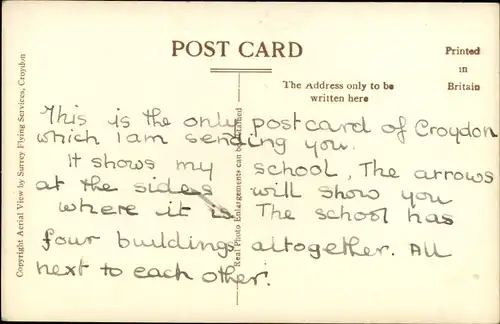 POST CARD
Printed
in
Britain
The Address only to be
written here
Copyright Aerial View by Surrey Flying Services, Croydon
Real Photo Enlargements can be obtained
This is the only postcard of Croydon
which I am sending you.
It shows my school, The arrows
at the sides will show you
where it is. The school has
four buildings altogether. All
next to each other.